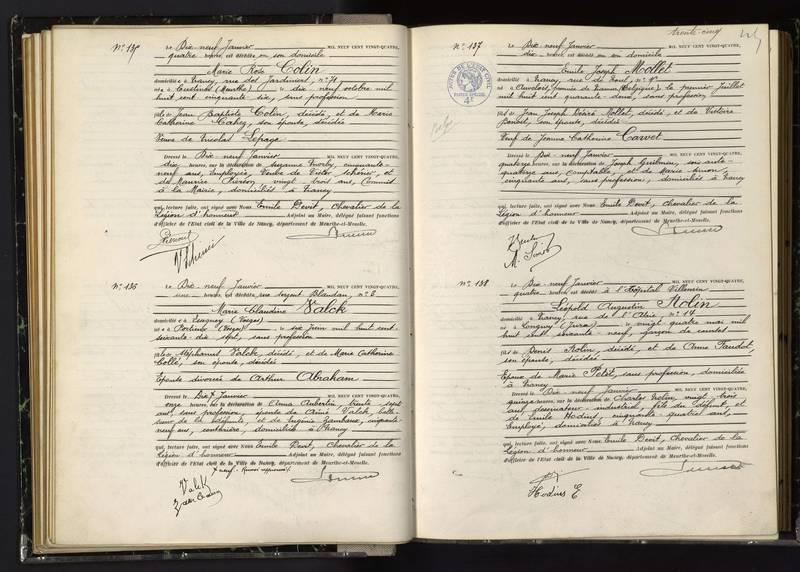 N° 135
Le Dix neuf Janvier MIL NEUF CENT VINGT-QUATRE,
quatre heures, est décédée en son domicile
Marie Rose Colin
domiciliée à Nancy, rue des Jardiniers, n° 71
née à Custines (Meurthe) le dix neuf octobre mil
huit cent cinquante six, sans profession
fille de Jean Baptiste Colin, décédé, et de Marie
Catherine son épouse, décédée
Veuve de Nicolas Lepage
Dressé le Dix neuf Janvier MIL NEUF CENT VINGT-QUATRE,
dix heures, sur la déclaration de Suzanne cinquante-
neuf ans, employée, Veuve de Victor et
de Maurice vingt trois ans, Commis
à la Mairie, domiciliés à Nancy
qui, lecture faite, ont signé avec Nous Emile Devit, Chevalier de la
Légion d'honneur Adjoint au Maire, délégué faisant fonctions
d'officier de l'Etat civil de la Ville de Nancy, département de Meurthe-et-Moselle.
N° 136
Le Dix neuf Janvier MIL NEUF CENT VINGT-QUATRE,
une heures, est décédée rue Sergent Blandan, n° 6
Marie Claudine Valck
domiciliée à (Vosges)
née à Portieux (Vosges) le six Juin mil huit cent
soixante dix sept, sans profession
fille de Valck, décédé, et de Marie Catherine
Collé, son épouse, décédée
Epouse divorcée de Arthur Abraham
Dressé le Dix Janvier MIL NEUF CENT VINGT-QUATRE,
onze heures, sur la déclaration de Anna Aubertin, trente sept
ans, sans profession, épouse de Aimé Valck, belle-
sœur de la défunte, et de Eugénie cinquante
neuf ans, couturière, domiciliées à Nancy
qui, lecture faite, ont signé avec Nous Emile Devit, Chevalier de la
Légion d'honneur Adjoint au Maire, délégué faisant fonctions
d'officier de l'Etat civil de la Ville de Nancy, département de Meurthe-et-Moselle.
Valck
trente-cinq
N° 137
Le Dix neuf Janvier MIL NEUF CENT VINGT-QUATRE,
dix heures, est décédé en son domicile
Emile Joseph Mollet
domicilié à Nancy, rue de Toul, n°
né à province de Namur (Belgique) le premier Juillet
mil huit cent quarante deux, sans profession
fils de Jean Joseph Désiré Mollet, décédé, et de Victoire
son épouse, décédée
Veuf de Jeanne Catherine Cawet
Dressé le Dix neuf Janvier MIL NEUF CENT VINGT-QUATRE,
quatorze heures, sur la déclaration de Joseph soixante-
quatorze ans, comptable, et de Marie Simon,
cinquante ans, sans profession, domiciliés à Nancy
qui, lecture faite, ont signé avec Nous Emile Devit, Chevalier de la
Légion d'honneur Adjoint au Maire, délégué faisant fonctions
d'officier de l'Etat civil de la Ville de Nancy, département de Meurthe-et-Moselle.
M. Simon
N° 138
Le Dix neuf Janvier MIL NEUF CENT VINGT-QUATRE,
quatre heures, est décédé à l'Hôpital Villemin
Léopold Augustin Molin
domicilié à Nancy, rue de l' n° 14
né à Longwy (Jura) le vingt quatre mai mil
huit cent soixante neuf, garçon de
fils de Denis Molin, décédé, et de Anne
son épouse, décédée
Epoux de Marie Petit, sans profession, domiciliée
à Nancy
Dressé le Dix neuf Janvier MIL NEUF CENT VINGT-QUATRE,
quinze heures, sur la déclaration de Charles Molin, vingt trois
ans, dessinateur industriel, fils du défunt, et
de Emile Hodins, cinquante quatre ans,
Employé, domiciliés à Nancy
qui, lecture faite, ont signé avec Nous Emile Devit, Chevalier de la
Légion d'honneur Adjoint au Maire, délégué faisant fonctions
d'officier de l'Etat civil de la Ville de Nancy, département de Meurthe-et-Moselle.
Hodins E